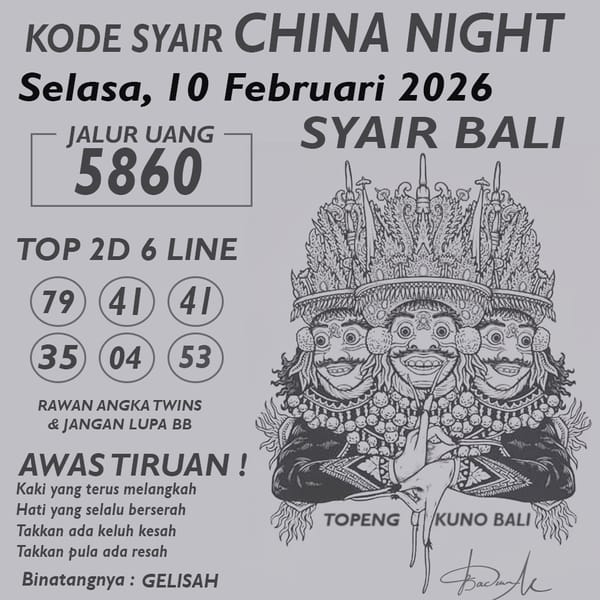 KODE SYAIR CHINA NIGHT
Selasa, 10 Februari 2026
SYAIR BALI
JALUR UANG
5860
TOP 2D 6 LINE
79 41 41
35 04 53
RAWAN ANGKA TWINS
& JANGAN LUPA BB
AWAS TIRUAN !
Kaki yang terus melangkah
Hati yang selalu berserah
Takkan ada keluh kesah
Takkan pula ada resah
Binatangnya : GELISAH
TOPENG KUNO BALI